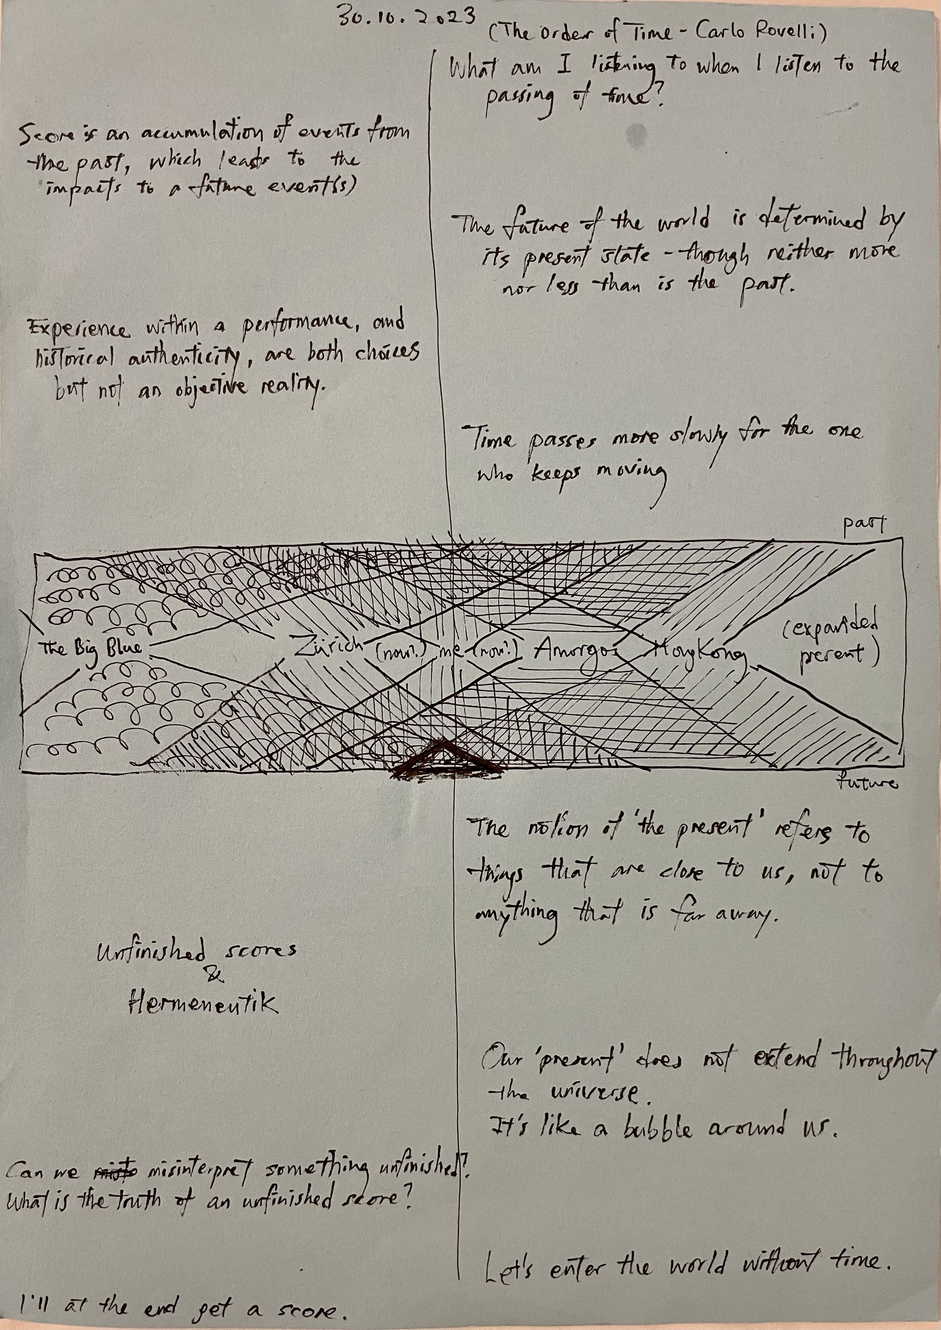 30.10.2023
(The Order of Time - Carlo Rovelli)
What am I listening to when I listen to the
passing of time?
Score is an accumulation of events from
the past, which leads to the
impacts to a future event(s)
The future of the world is determined by
its present state - though neither more
nor less than is the past.
Experience within a performance, and
historical authenticity, are both choices
but not an objective reality.
Time passes more slowly for the one
who keeps moving
past
The Big Blue
Zürich (now?) me (now?) Amorgos HongKong
(expanded
percent)
future
The notion of 'the present' refers to
things that are close to us, not to
anything that is far away.
Unfinished scores
&
Hermeneutik
Our 'present' does not extend throughout
the universe.
It's like a bubble around us.
Can we misinterpret something unfinished?
What is the truth of an unfinished score?
Let's enter the world without time.
I'll at the end get a score.